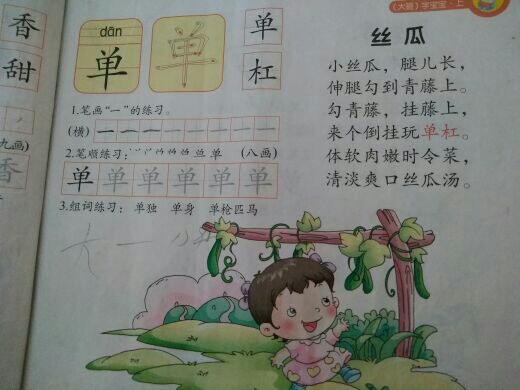 (大班)字宝宝·上
香
甜
九画)
香
dān
单
单
单
杠
1.笔画“一”的练习。
(横)
2.笔顺练习: 单 (八画)
单 单 单 单 单 单
3.组词练习: 单独 单身 单枪匹马
大 一
丝 瓜
小丝瓜，腿儿长，
伸腿勾到青藤上。
勾青藤，挂藤上，
来个倒挂玩单杠。
体软肉嫩时令菜，
清淡爽口丝瓜汤。